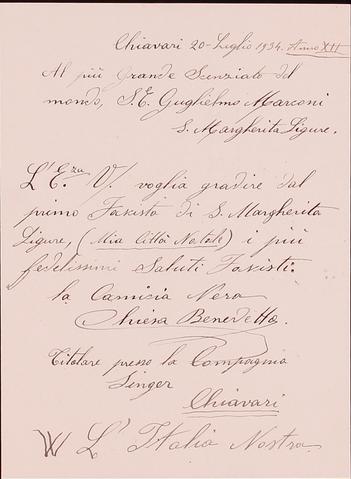 Chiavari 20-Luglio 1934. Anno XII
Al più Grande Scenziato del
mondo, S.E. Guglielmo Marconi
S. Margherita Ligure.
L'Eza. V. voglia gradire dal
primo Fascista di S. Margherita
Ligure, (Mia Città Natale) i più
fedelissimi Saluti Fascisti.
la Camicia Nera
Chiesa Benedetto.
Titolare presso la Compagnia
Singer
Chiavari
W L'Italia Nostra